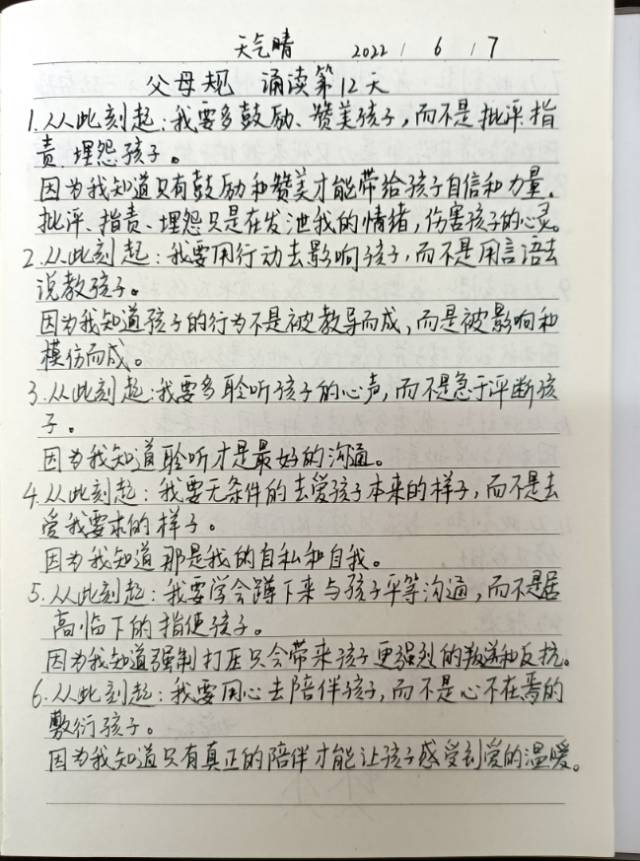 天气晴 2022 / 6 / 7
父母规 诵读第12天
1.从此刻起:我要多鼓励、赞美孩子,而不是批评指
责埋怨孩子。
因为我知道只有鼓励和赞美才能带给孩子自信和力量。
批评、指责、埋怨只是在发泄我的情绪,伤害孩子的心灵。
2.从此刻起:我要用行动去影响孩子,而不是用言语去
说教孩子。
因为我知道孩子的行为不是被教导而成,而是被影响和
模仿而成。
3.从此刻起:我要多聆听孩子的心声,而不是急于评断孩
子。
因为我知道聆听才是最好的沟通。
4.从此刻起:我要无条件的去爱孩子本来的样子,而不是去
爱我要求的样子。
因为我知道那是我的自私和自我。
5.从此刻起:我要学会蹲下来与孩子平等沟通,而不是居
高临下的指使孩子。
因为我知道强制打压只会带来孩子更强烈的叛逆和反抗。
6.从此刻起:我要用心去陪伴孩子,而不是心不在焉的
敷衍孩子。
因为我知道只有真正的陪伴才能让孩子感受到爱的温暖。